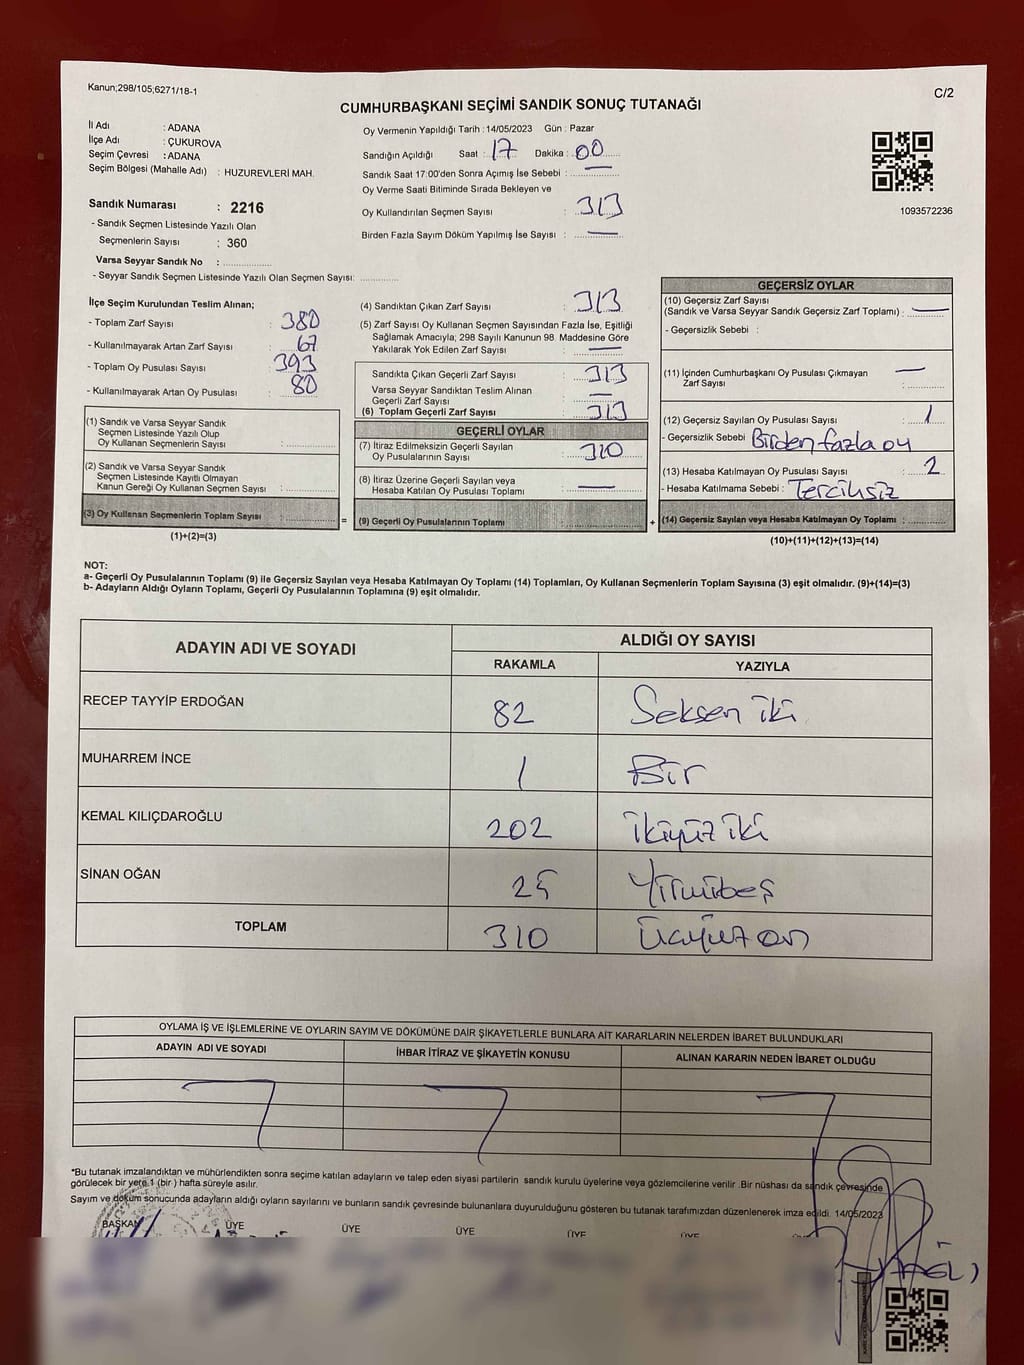 Kanun;298/105;6271/18-1
C/2
CUMHURBAŞKANI SEÇİMİ SANDIK SONUÇ TUTANAĞI
İl Adı : ADANA
İlçe Adı : ÇUKUROVA
Seçim Çevresi : ADANA
Seçim Bölgesi (Mahalle Adı) : HUZUREVLERİ MAH.
Sandık Numarası : 2216
- Sandık Seçmen Listesinde Yazılı Olan
Seçmenlerin Sayısı : 360
Varsa Seyyar Sandık No :
- Seyyar Sandık Seçmen Listesinde Yazılı Olan Seçmen Sayısı:
Oy Vermenin Yapıldığı Tarih : 14/05/2023 Gün : Pazar
Sandığın Açıldığı Saat : 17 Dakika : 00
Sandık Saat 17:00'den Sonra Açımış İse Sebebi : —
Oy Verme Saati Bitiminde Sırada Bekleyen ve
Oy Kullandırılan Seçmen Sayısı : 313
Birden Fazla Sayım Döküm Yapılmış İse Sayısı : —
1093572236
İlçe Seçim Kurulundan Teslim Alınan;
- Toplam Zarf Sayısı : 380
- Kullanılmayarak Artan Zarf Sayısı : 67
- Toplam Oy Pusulası Sayısı : 393
- Kullanılmayarak Artan Oy Pusulası : 80
(1) Sandık ve Varsa Seyyar Sandık
Seçmen Listesinde Yazılı Olup
Oy Kullanan Seçmenlerin Sayısı :
(2) Sandık ve Varsa Seyyar Sandık
Seçmen Listesinde Kayıtlı Olmayan
Kanun Gereği Oy Kullanan Seçmen Sayısı :
(3) Oy Kullanan Seçmenlerin Toplam Sayısı :
(1)+(2)=(3)
(4) Sandıktan Çıkan Zarf Sayısı : 313
(5) Zarf Sayısı Oy Kullanan Seçmen Sayısından Fazla İse, Eşitliği
Sağlamak Amacıyla; 298 Sayılı Kanunun 98. Maddesine Göre
Yakılarak Yok Edilen Zarf Sayısı : —
Sandıkta Çıkan Geçerli Zarf Sayısı : 313
Varsa Seyyar Sandıktan Teslim Alınan
Geçerli Zarf Sayısı : —
(6) Toplam Geçerli Zarf Sayısı : 313
GEÇERLİ OYLAR
(7) İtiraz Edilmeksizin Geçerli Sayılan
Oy Pusulalarının Sayısı : 310
(8) İtiraz Üzerine Geçerli Sayılan veya
Hesaba Katılan Oy Pusulası Toplamı : —
= (9) Geçerli Oy Pusulalarının Toplamı :
GEÇERSİZ OYLAR
(10) Geçersiz Zarf Sayısı
(Sandık ve Varsa Seyyar Sandık Geçersiz Zarf Toplamı) : —
- Geçersizlik Sebebi :
(11) İçinden Cumhurbaşkanı Oy Pusulası Çıkmayan
Zarf Sayısı : —
(12) Geçersiz Sayılan Oy Pusulası Sayısı : 1
- Geçersizlik Sebebi : Birden fazla oy
(13) Hesaba Katılmayan Oy Pusulası Sayısı : 2
- Hesaba Katılmama Sebebi : Tercihsiz
+ (14) Geçersiz Sayılan veya Hesaba Katılmayan Oy Toplamı :
(10)+(11)+(12)+(13)=(14)
NOT:
a- Geçerli Oy Pusulalarının Toplamı (9) ile Geçersiz Sayılan veya Hesaba Katılmayan Oy Toplamı (14) Toplamları, Oy Kullanan Seçmenlerin Toplam Sayısına (3) eşit olmalıdır. (9)+(14)=(3)
b- Adayların Aldığı Oyların Toplamı, Geçerli Oy Pusulalarının Toplamına (9) eşit olmalıdır.
ADAYIN ADI VE SOYADI ALDIĞI OY SAYISI
RAKAMLA YAZIYLA
RECEP TAYYİP ERDOĞAN 82 Seksen iki
MUHARREM İNCE 1 Bir
KEMAL KILIÇDAROĞLU 202 ikiyüz iki
SİNAN OĞAN 25 Yirmibeş
TOPLAM 310 Üçyüz on
OYLAMA İŞ VE İŞLEMLERİNE VE OYLARIN SAYIM VE DÖKÜMÜNE DAİR ŞİKAYETLERLE BUNLARA AİT KARARLARIN NELERDEN İBARET BULUNDUKLARI
ADAYIN ADI VE SOYADI İHBAR İTİRAZ VE ŞİKAYETİN KONUSU ALINAN KARARIN NEDEN İBARET OLDUĞU
*Bu tutanak imzalandıktan ve mühürlendikten sonra seçime katılan adayların ve talep eden siyasi partilerin sandık kurulu üyelerine veya gözlemcilerine verilir .Bir nüshası da sandık çevresinde
görülecek bir yere 1 (bir ) hafta süreyle asılır.
Sayım ve döküm sonucunda adayların aldığı oyların sayılarını ve bunların sandık çevresinde bulunanlara duyurulduğunu gösteren bu tutanak tarafımızdan düzenlenerek imza edildi. 14/05/2023
BAŞKAN ÜYE ÜYE ÜYE ÜYE ÜYE